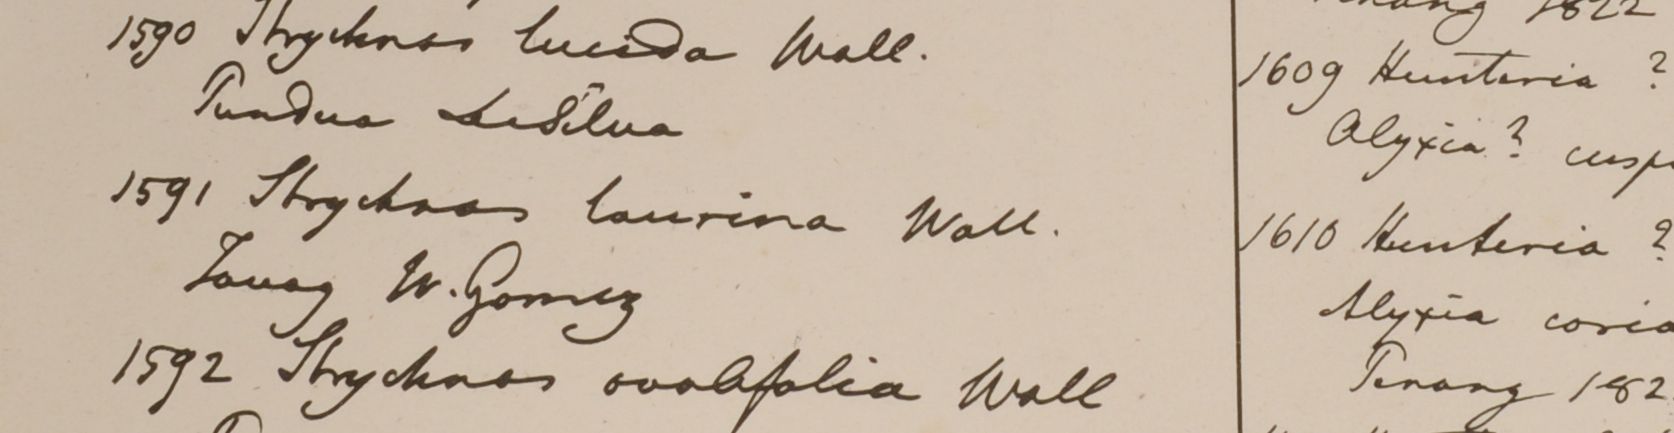 1590 Strychnos lucida Wall.
Pundua DeSilva
1591 Strychnos laurina Wall.
Tavoy W. Gomez
1592 Strychnos ovalifolia Wall
Penang 1822
1609 Hunteria ?
Alyxia ? cusp
1610 Hunteria ?
Alyxia coria
Penang 182